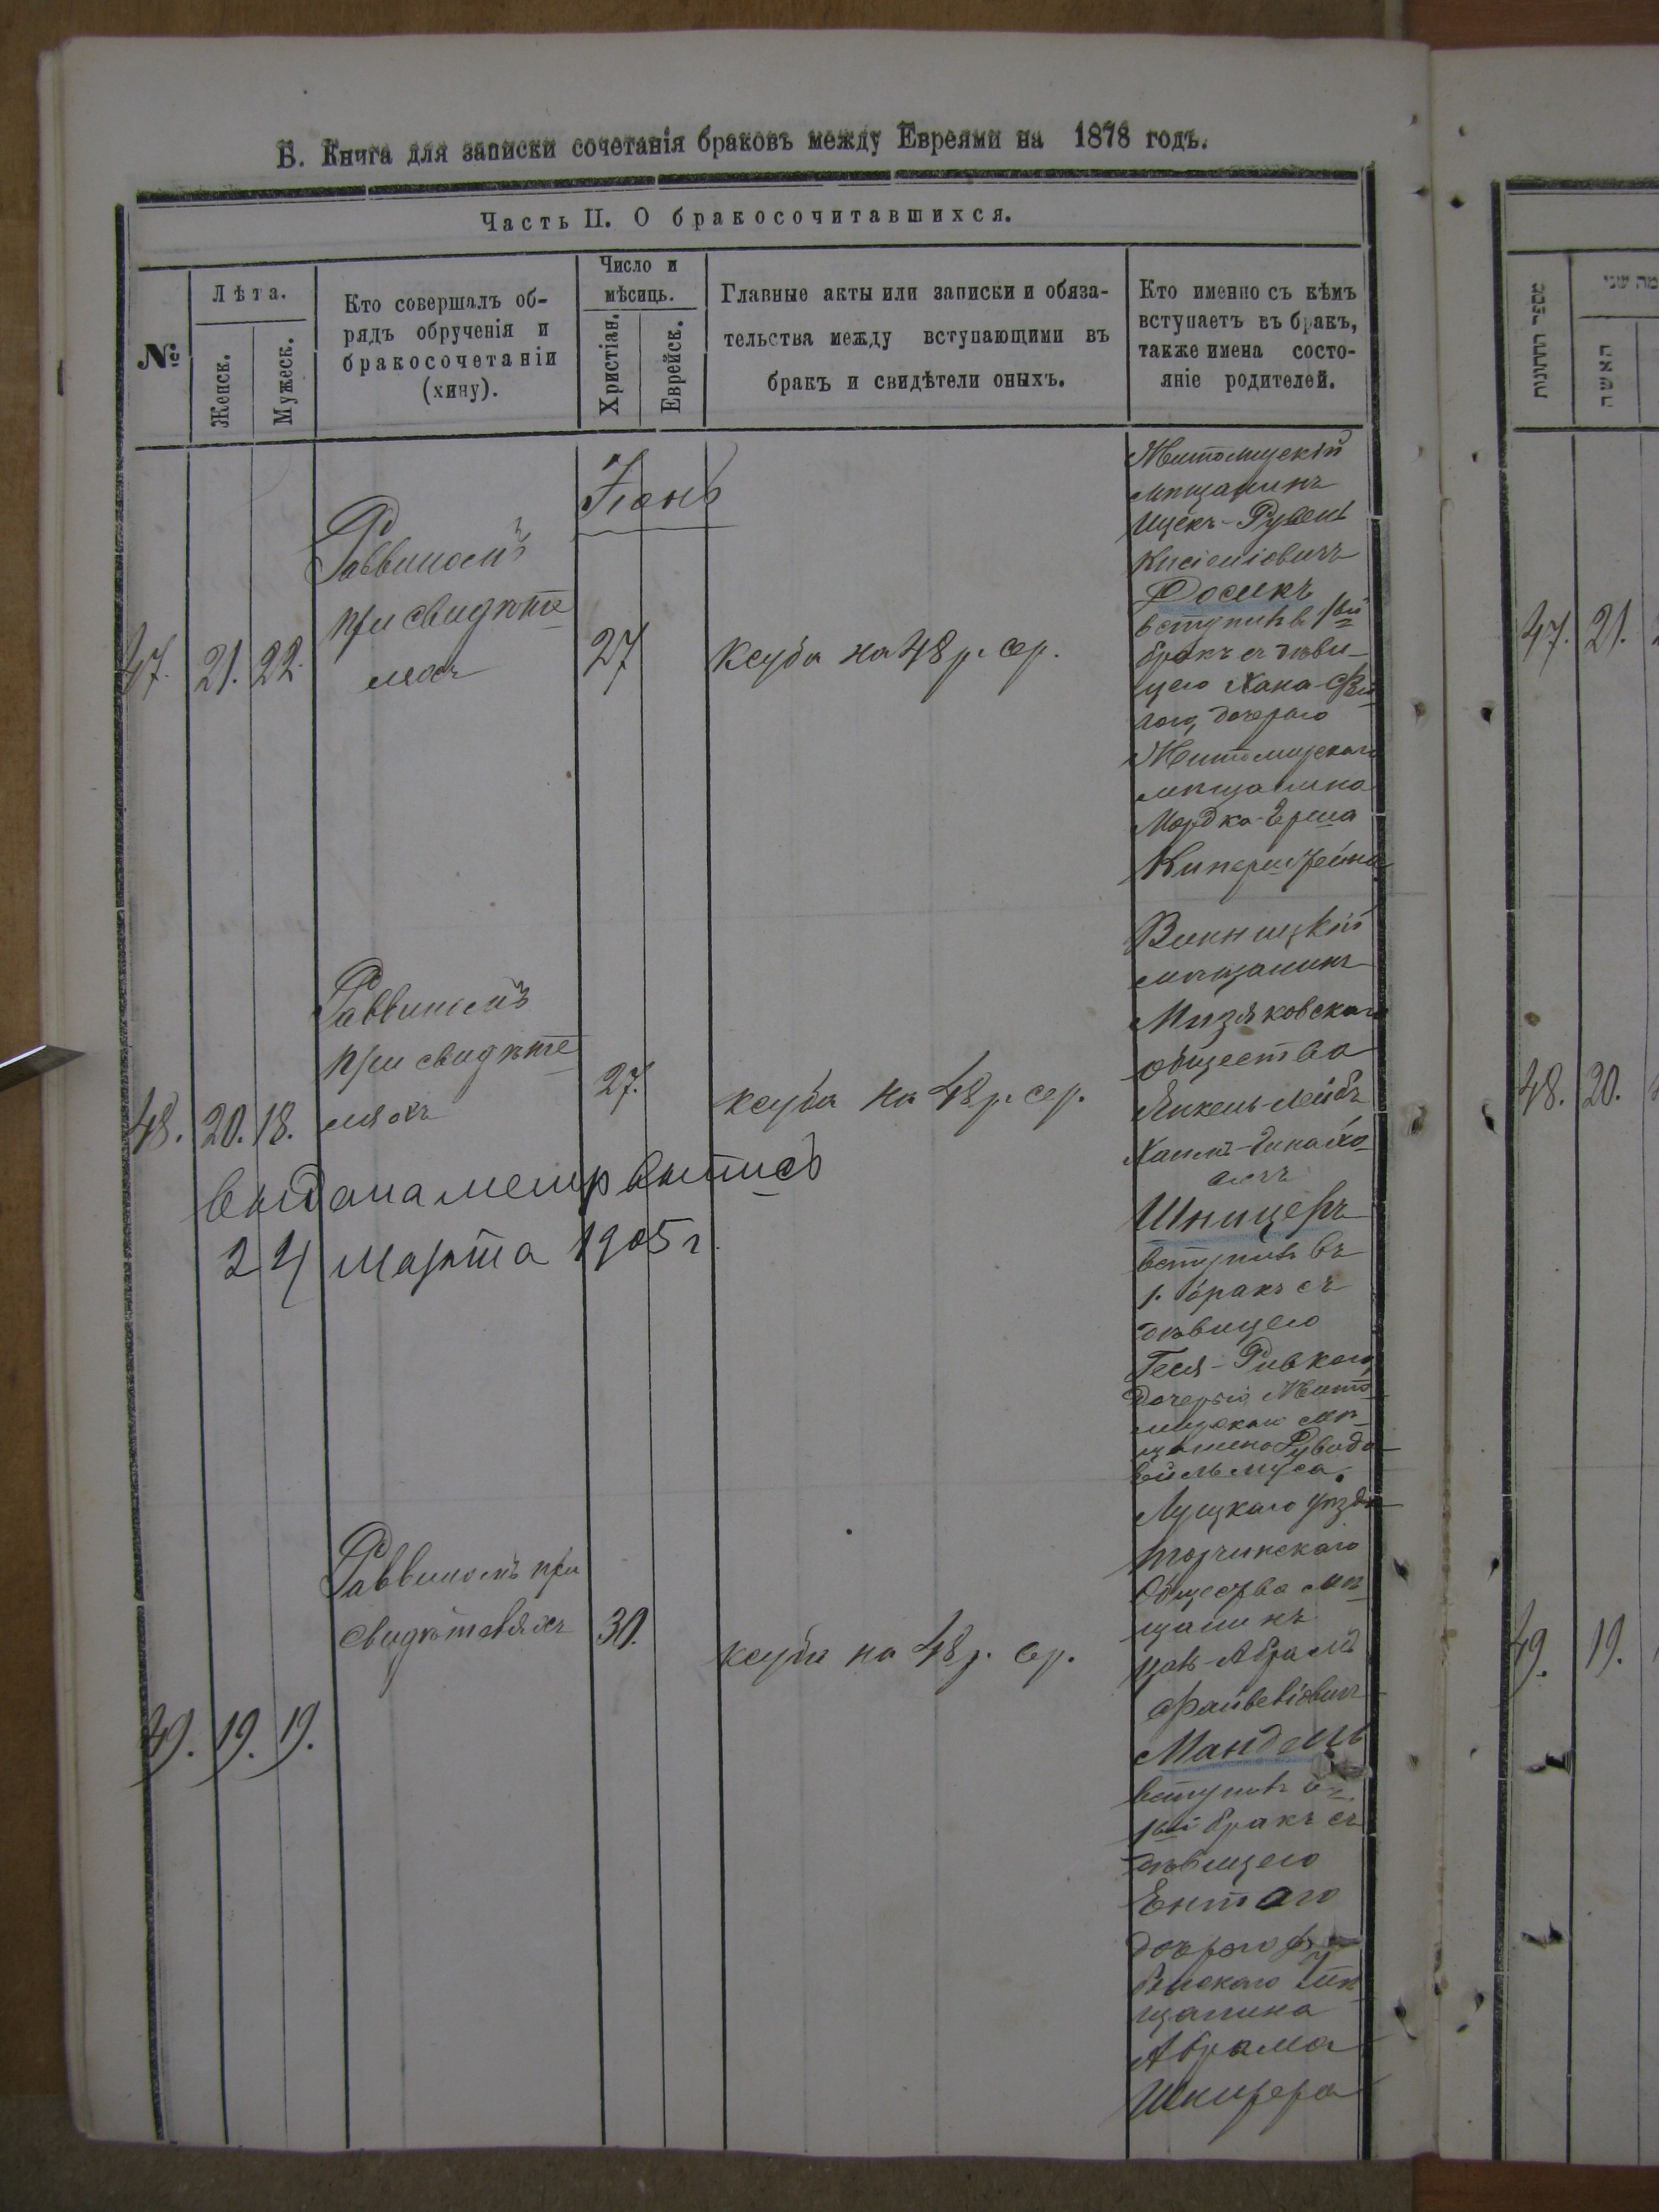 Б. Книга для записки сочетанія браковъ между Евреями на 1878 годъ.
Часть II. О бракосочитавшихся.
№
Лѣта.
Женск.
Мужеск.
Кто совершалъ об-
рядъ обрученія и
бракосочетаніи
(хину).
Число и
мѣсяць.
Христіан.
Еврейск.
Главные акты или записки и обяза-
тельства между вступающими въ
бракъ и свидѣтели оныхъ.
Кто именно съ кѣмъ
вступаетъ въ бракъ,
также имена состо-
яніе родителей.
Іюнь
47. 21. 22.
Раввиномъ
при свидѣте
ляхъ
27
Ксуба на 48 р. сер.
Житомирскій
мѣщанинъ
Ицекъ-Рувень
Росикъ
вступилъ в 1ый
бракъ съ дѣви-
цею Хана-
дочерью
Житомирскаго
мѣщанина
Мордка-Герша
Киперштейна
48. 20. 18.
Раввиномъ
при свидѣте
ляхъ
27.
ксуба на 48 р. сер.
Винницкій
мѣщанинъ
Мизяковскаго
общества
Янкель-Лейбъ
Хаимъ-
Шницеръ
вступилъ въ
1. бракъ съ
дѣвицею
Геся-Ривкою,
дочерью Жито-
мирскаго мѣ-
щанина
выдана метр выпись
24 марта 1905 г.
49. 19. 19.
Раввиномъ при
свидѣтеляхъ
30.
ксуба на 48 р. сер.
Луцкаго уѣзда
Торчинскаго
Общества мѣ-
щанинъ
Абрамъ
Файвелiовичъ
Мандель
вступилъ въ
1ый бракъ съ
дѣвицею
Ентою
дочерью
мѣ-
щанина
Абрама
מספר החתונות
האשה
47. 21.
48. 20.
49. 19.